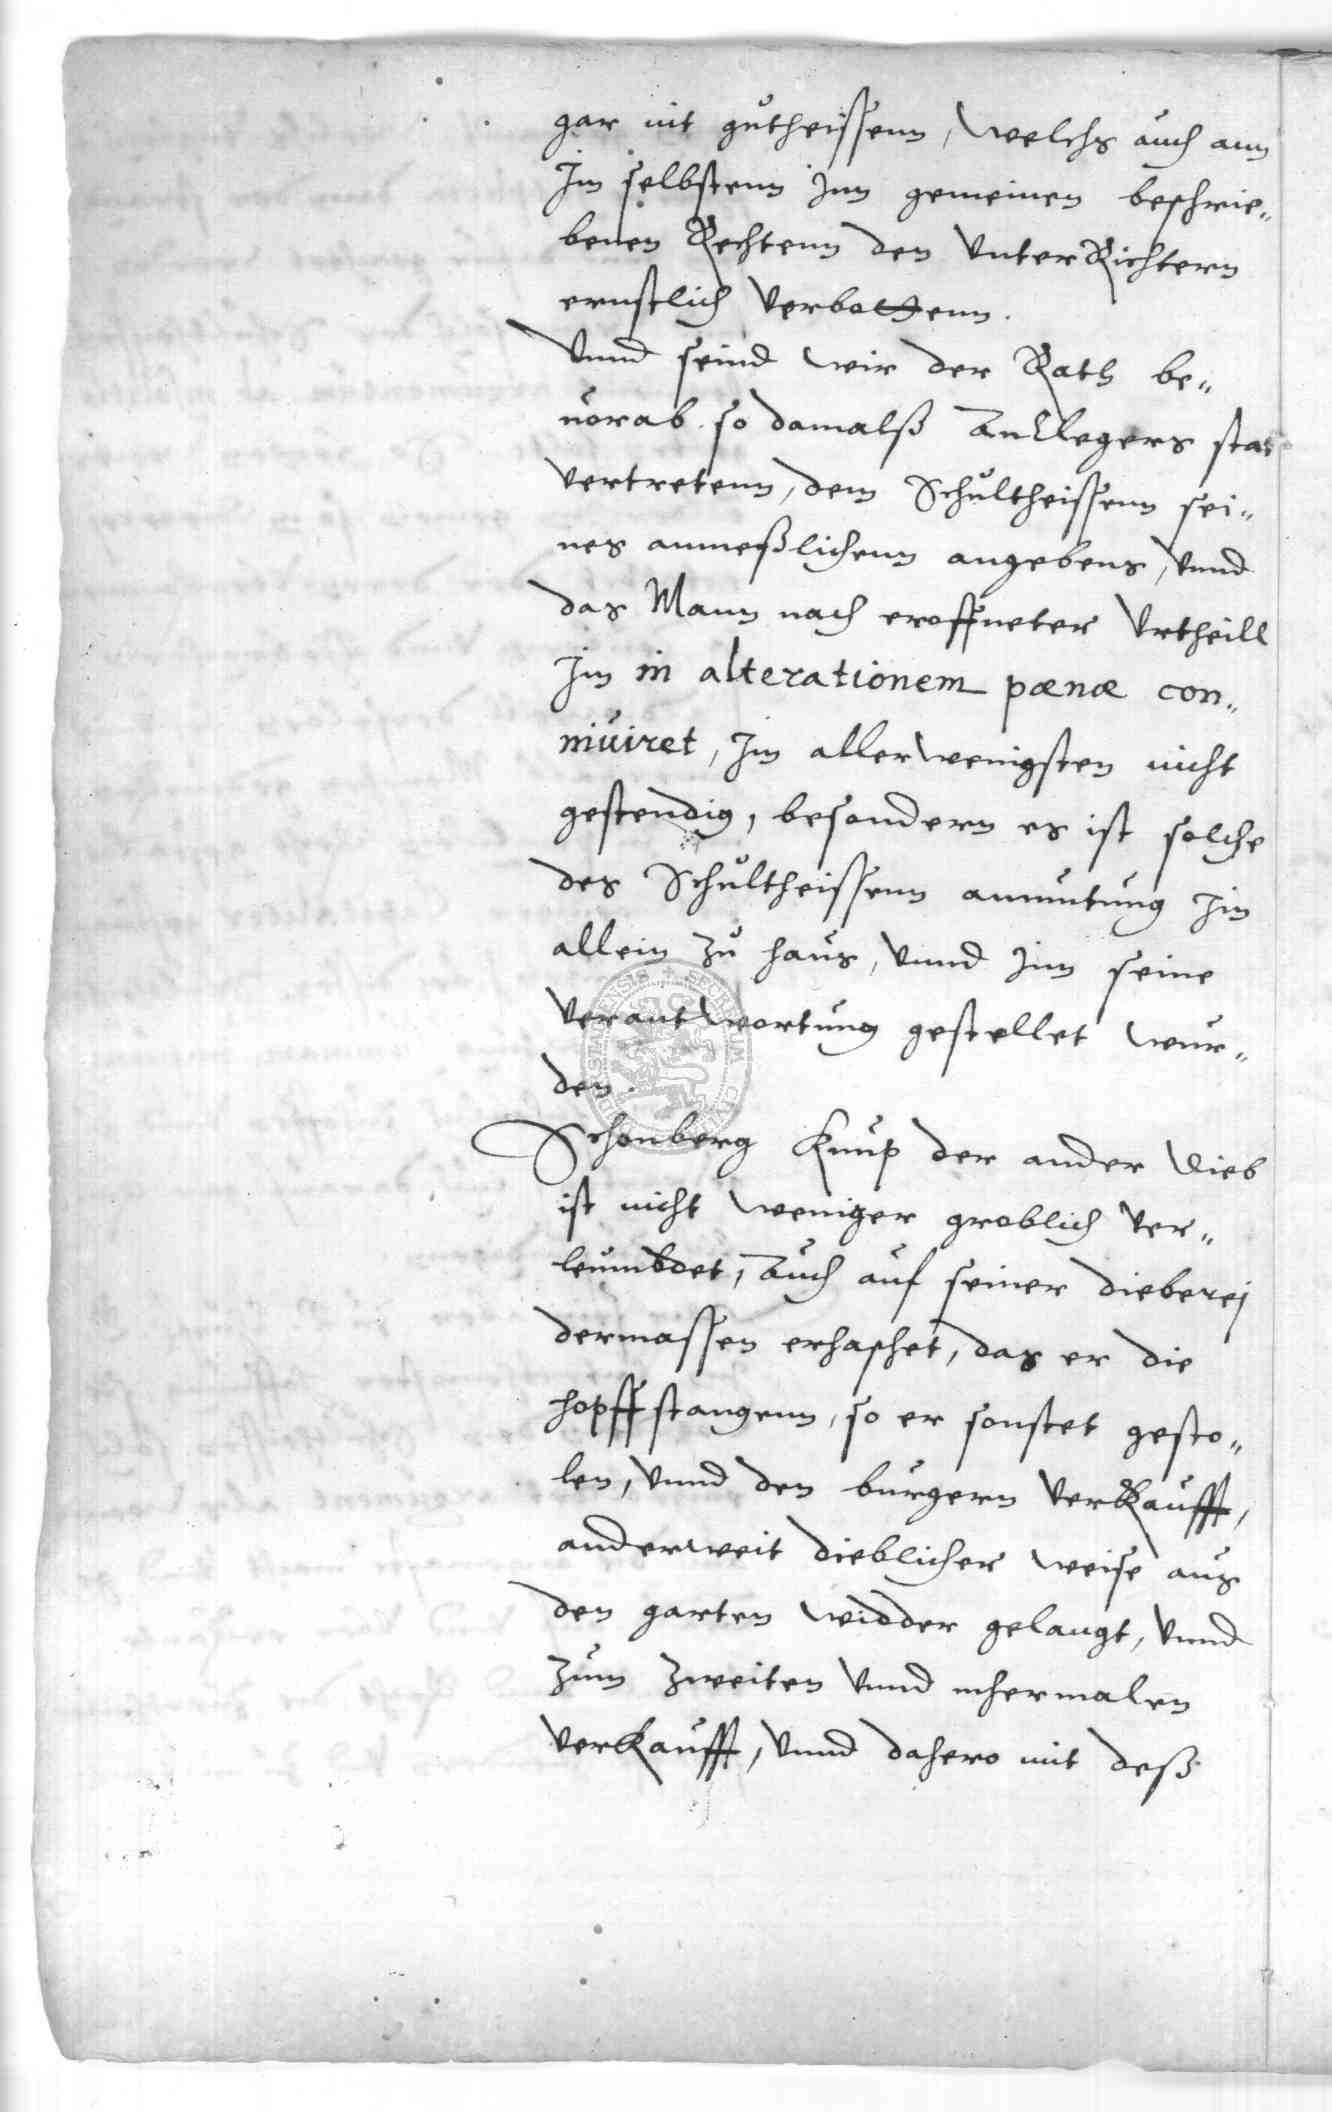 gar nit gutheissenn, welchs auch ann
Im selbstenn Inn gemeinen beschrie„
benen Rechtenn den unter Richtern
ernstlich verbottenn.
Vnnd seind wir der Rath be„
uorab so damalß Anklegers stat
vertretenn, dem Schultheissenn sei„
nes anmeßlichenn angebens, vnnd
das Mann nach eroffneter Vrtheill
Im in alterationem pænæ con„
niuiret, Im allerwenigsten nicht
gestendig, besondern es ist solche
des Schultheissenn anmutung Im
allein zu haus, vnnd Inn seine
verantwortung gestellet wur„
den.
Schonberg Knup der ander Dieb
ist nicht weniger groblich ver„
leumbdet, Auch auf seiner dieberej
dermassen erhaschet, das er die
hopffstangenn, so er sonstet gesto„
len, vnnd den burgern verkaufft,
anderweit dieblicher weise aus
den garten widder gelangt, vnnd
zum zweiten vnnd mehermalen
verkaufft, vnnd dahero mit deß
SECRETUM